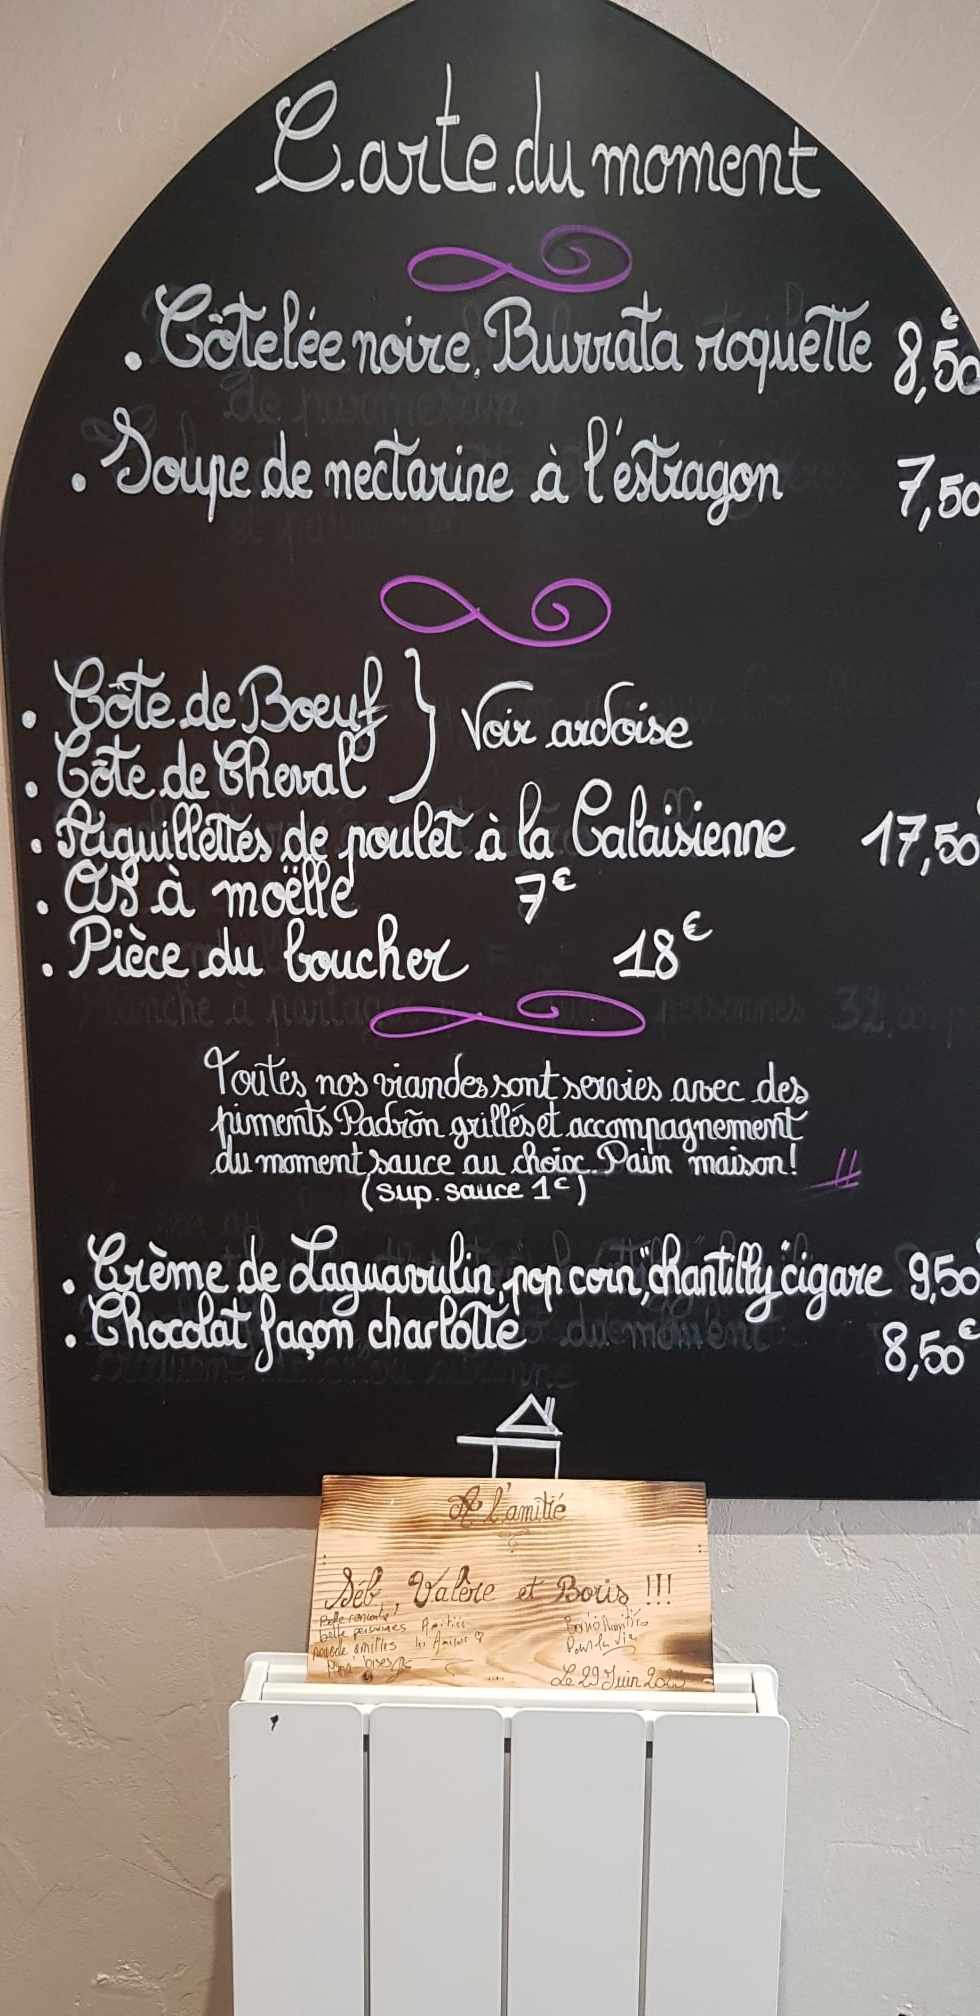 Carte du moment
. Côtelée noire, Burrata roquette 8,50€
. Soupe de nectarine à l'estragon 7,50
. Côte de Boeuf } Voir ardoise
. Côte de Cheval
. Aiguillettes de poulet à la Calaisienne 17,50
. Os à moëlle 7€
. Pièce du boucher 18€
Toutes nos viandes sont servies avec des
piments Padrõn grillés et accompagnement
du moment, sauce au choix. Pain maison!
(sup. sauce 1€)
. Crème de Laguavulin, pop corn, "chantilly" cigare 9,50
. Chocolat façon charlotte 8,50€
A l'amitié
Séb, Valère et Boris !!!
Belle rencontre!
belle personnes Amitiés
amitiés les Amis
Pour la vie
Le 29 Juin